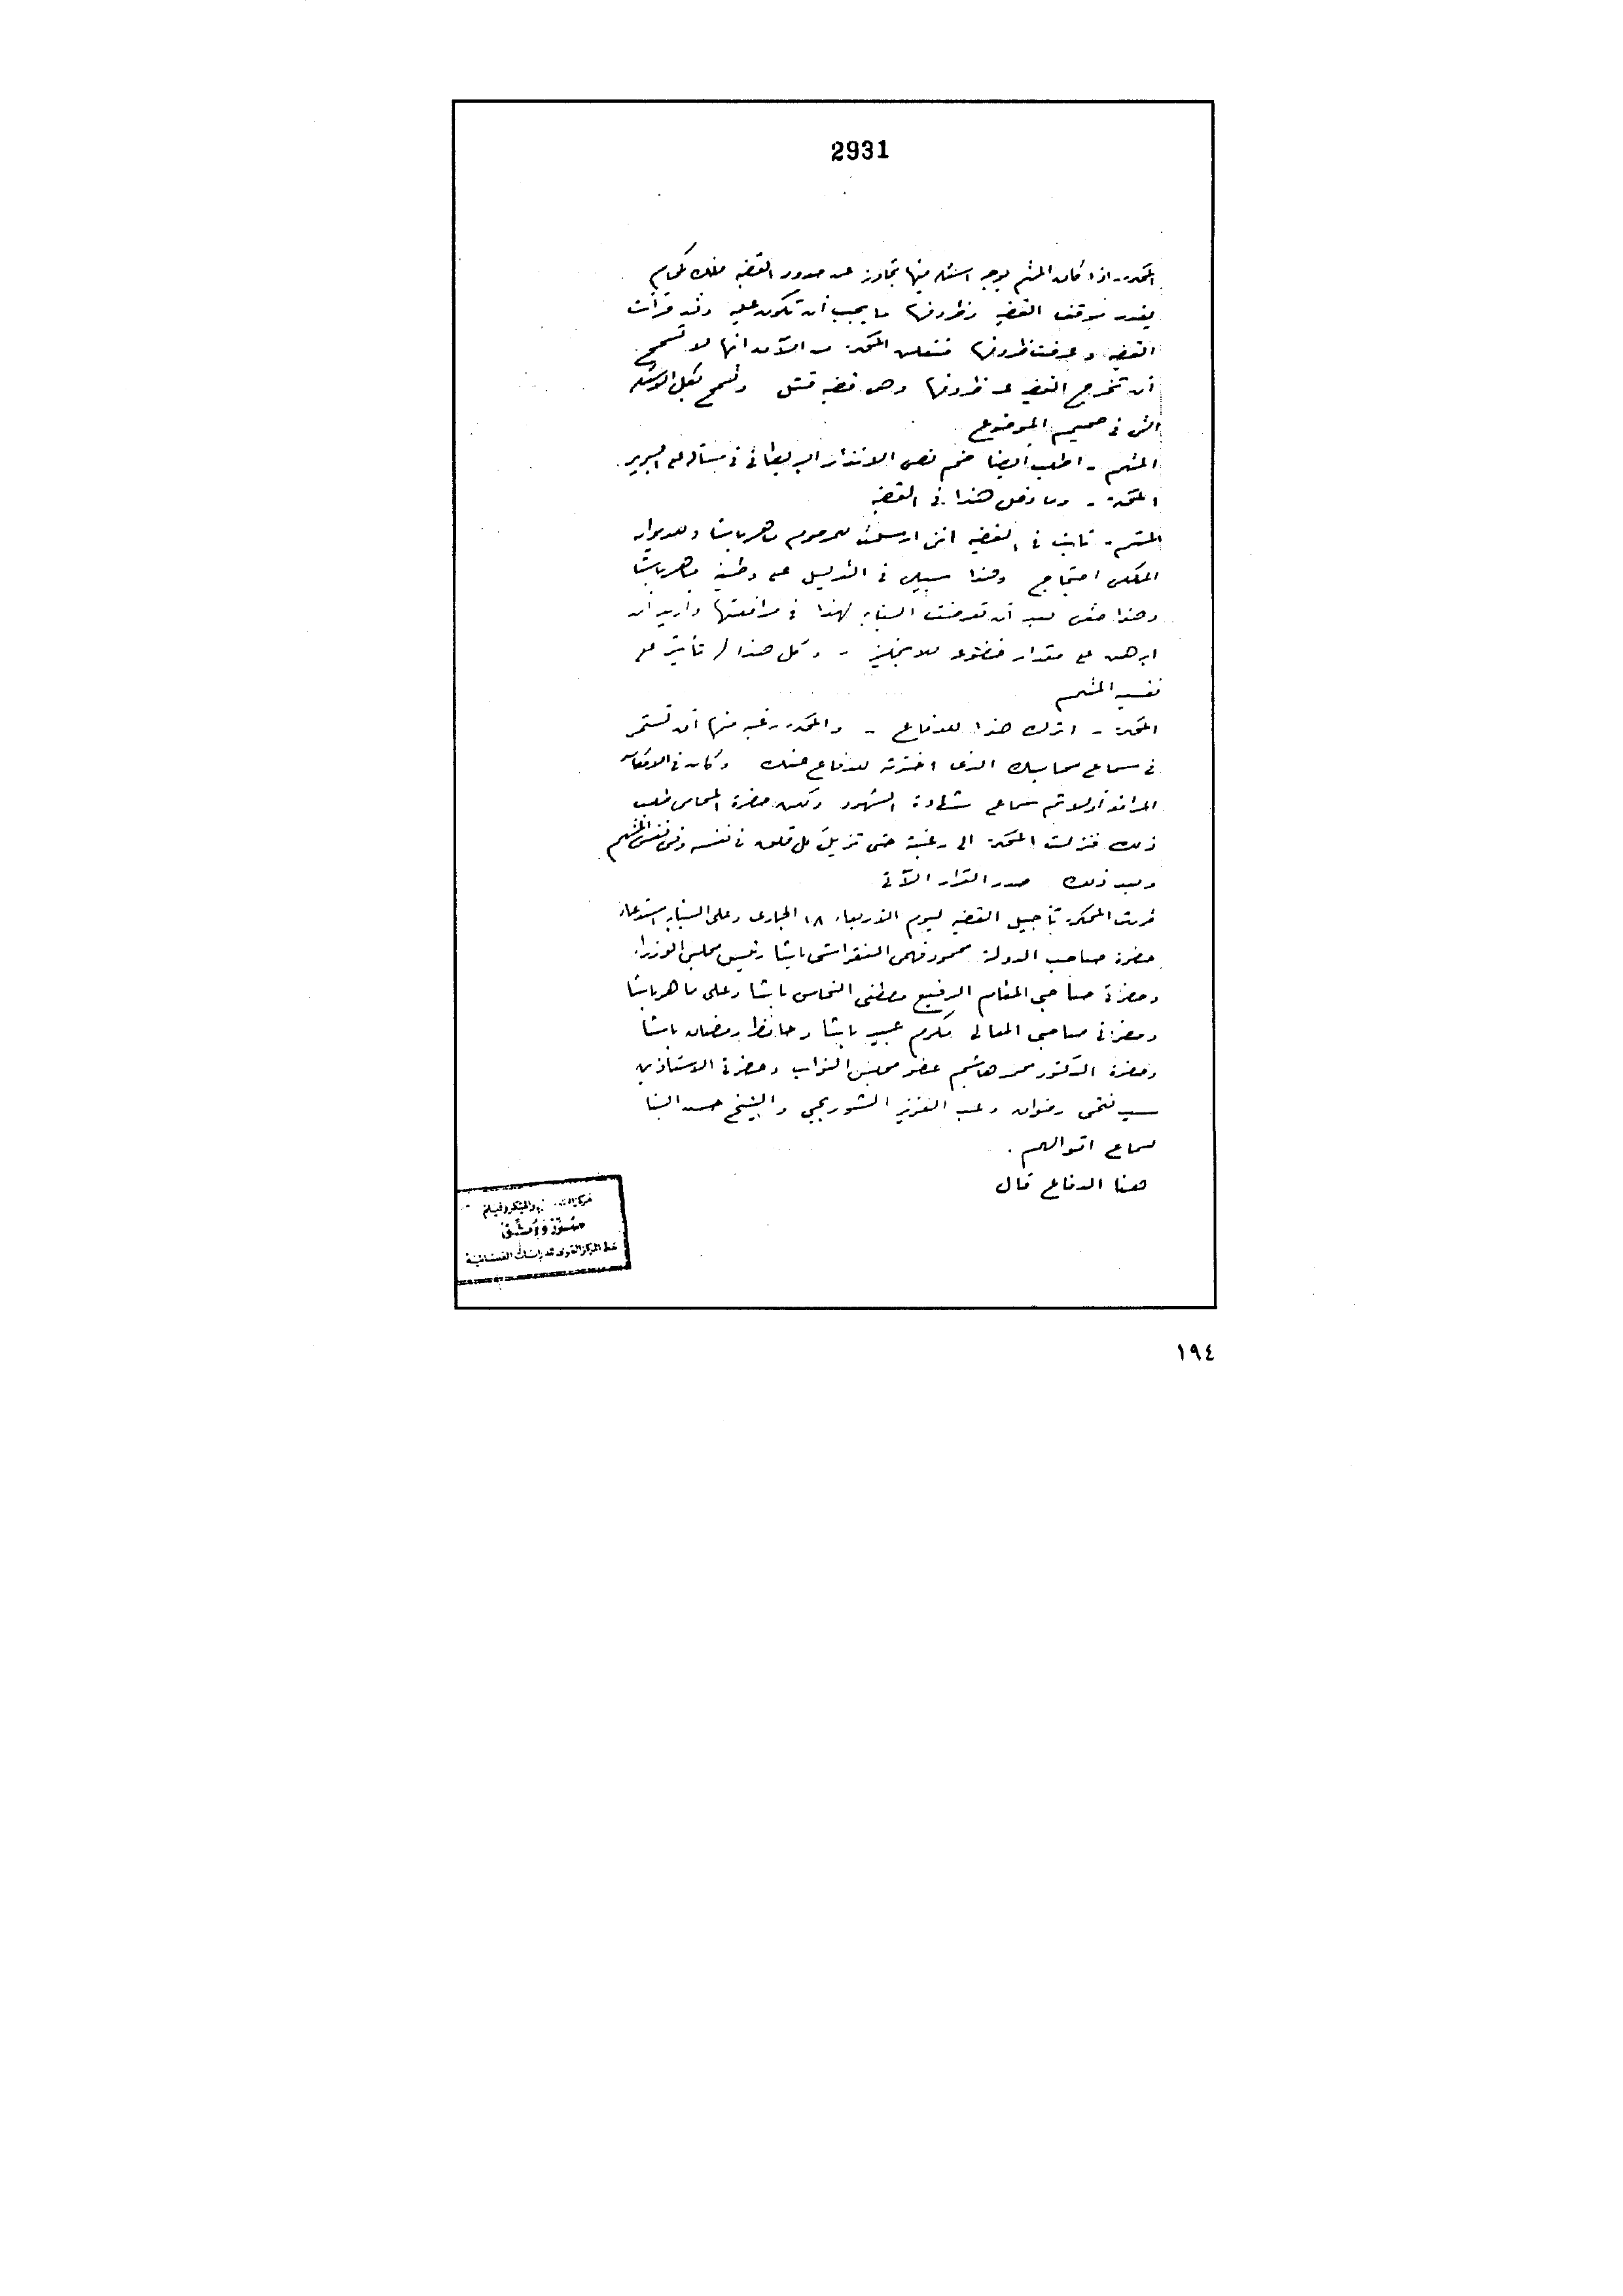 2931
المحكمة - اذا كان المتهم يوجه اسئله فيها تجاوز عن حدود القضيه فلك كمحام
يقدر موقف القضيه وظروفها ما يجب أن تكون عليه وقد قرأت
القضيه وعرفت ظروفها فتعلن المحكمة من الآن انها لا تسمح
أن تخرج القضيه عن ظروفها وهى قضيه قتل وتسمح بكل الاسئله
التى فى صميم الموضوع
المتهم - اطلب ايضا ضم نص الانذار البريطانى فى مسألة
المحكمة - وما دخل هذا فى القضيه
المتهم - ثابت فى القضيه اننى ارسلت للمرحوم ماهر باشا وللديوان
الملكى احتجاج وهذا سبيلى فى التدليل على وطنية ماهر باشا
وهذا حقى بعد أن تعرضت النيابه لهذا فى مرافعتها واريد أن
ابرهن على مقدار خضوعه للانجليز - وكل هذا له تأثير على
نفسية المتهم
المحكمة - اترك هذا للدفاع - والمحكمة رغبه منها أن تستمر
فى سماع محاميك الذى اخترته للدفاع عنك وكان فى الامكان
المرافعه أولا ثم سماع شهادة الشهود ولكن حضرة المحامى طلب
ذلك فنزلت المحكمة الى رغبته حتى تزيل كل قلق فى نفسه وفى نفس المتهم
وبعد ذلك صدر القرار الآتى
قررت المحكمة تأجيل القضيه ليوم الاربعاء ١٨ الجارى وعلى النيابه استدعاء
حضرة صاحب الدولة محمود فهمى النقراشى باشا رئيس مجلس الوزراء
وحضرة صاحبي المقام الرفيع مصطفى النحاس باشا وعلى ماهر باشا
وحضرتى صاحبى المعالى مكرم عبيد باشا وحافظ رمضان باشا
وحضرة الدكتور محمد هاشم عضو مجلس النواب وحضرة الاستاذين
سيد فتحى رضوان وعبد العزيز الشوربجي والشيخ حسن البنا
لسماع اقوالهم .
هنا الدفاع قال
والميكروفيلم
١٩٤